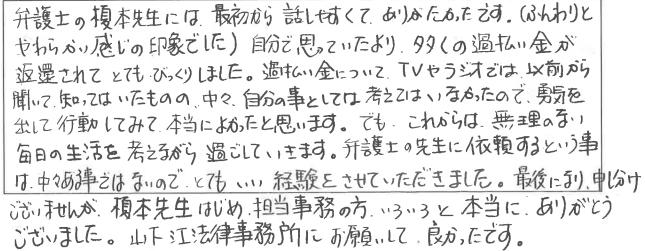 弁護士の榎本先生には、最初から話しやすくて、ありがたかったです。(ふんわりと
やわらかい感じの印象でした)自分で思っていたより、多くの過払い金が
返還されてとてもびっくりしました。過払い金について、TVやラジオでは、以前から
聞いて、知ってはいたものの、中々、自分の事としては考えてはいなかったので、勇気を
出して行動してみて、本当によかったと思います。でも、これからは、無理のない
毎日の生活を考えながら過ごしていきます。弁護士の先生に依頼するという事
は、中々ある事ではないので、とてもいい経験をさせていただきました。最後になり、申し分け
ございませんが、榎本先生はじめ、担当事務の方、いろいろと本当に、ありがとう
ございました。山下江法律事務所にお願いして、良かったです。